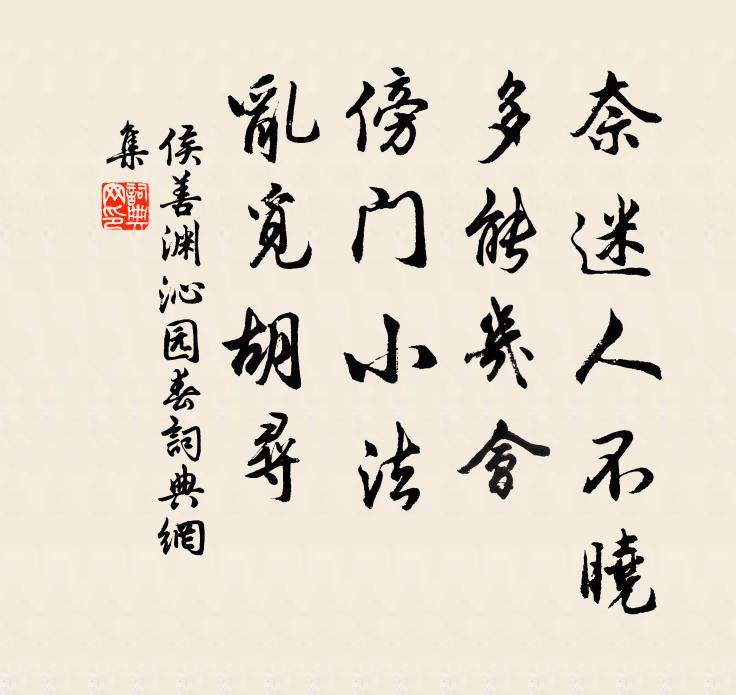 奈迷人不曉
多能幾會
傍门小法
亂覓胡尋
侯善渊沁园春詞典網
集
詞典
网印